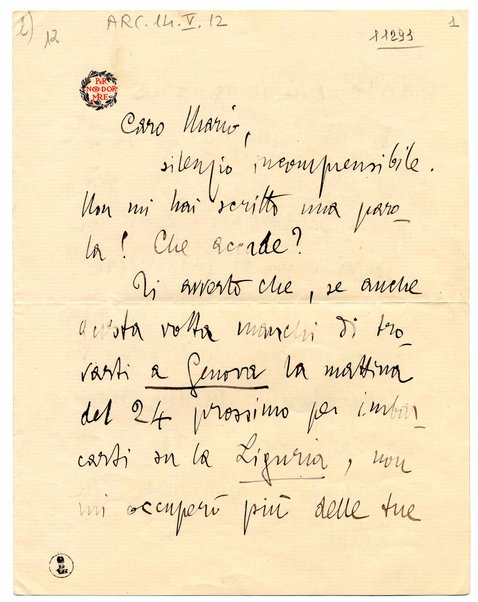 2) 12 ARC. 14. V. 12 11293 1
PER
NON DOR
MIRE
Caro Mario,
silenzio incomprensibile.
Non mi hai scritto una paro-
la! Che accade?
Ti avverto che, se anche
questa volta manchi di tro-
varti a Genova la mattina
del 24 prossimo per imbar-
carti su la Liguria, non
mi occuperò più delle tue